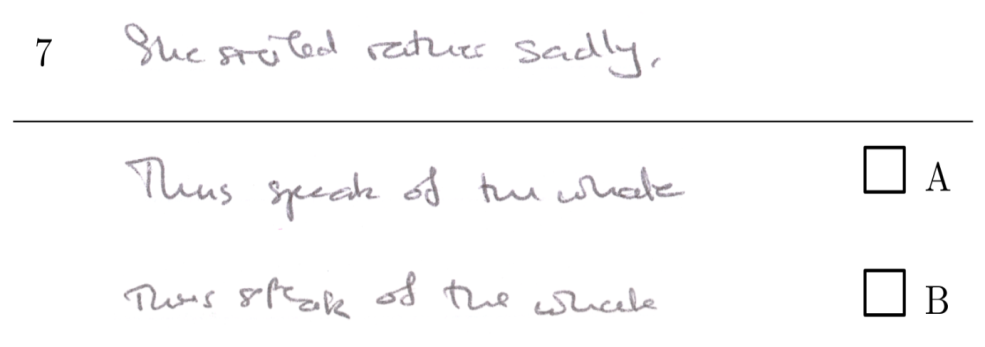 7 She smiled rather sadly.
Thus speak of the whale A
Thus speak of the whale B